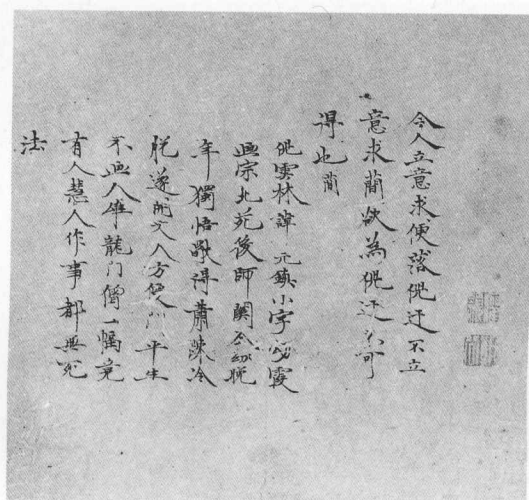 今人立意求便落倪迂不立
意求蕳欲為倪迂不可
得也蕳
倪雲林諱元鎮小字霞
畫宗北苑後師關仝晚
年獨悟得蕭疎冷
脫遂開文人方便門平生
不畫人龍門僧一幅竟
有人慧人作事都無死
法